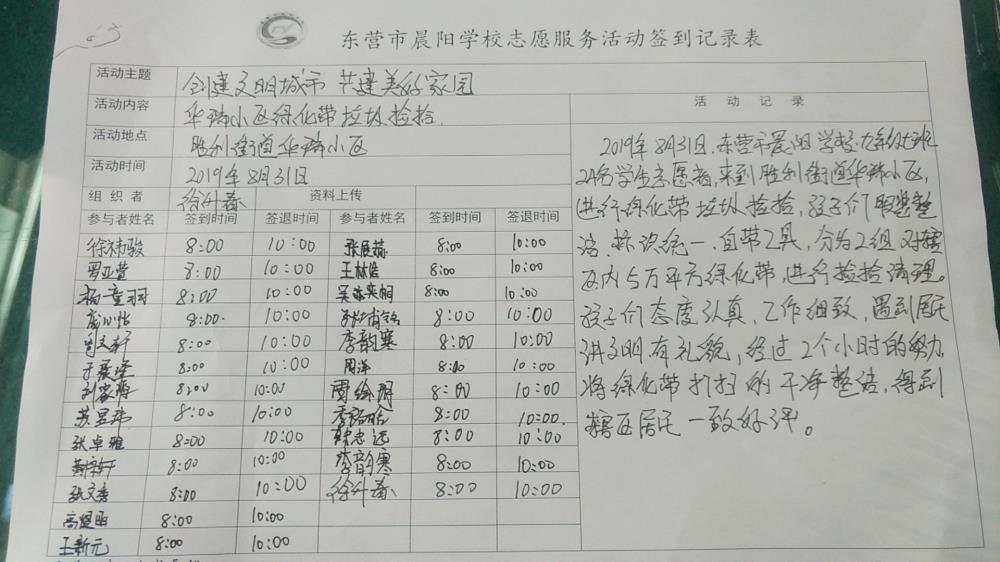 东营市晨阳学校志愿服务活动签到记录表
活动主题 创建文明城市 共建美好家园
活动内容 华瑞小区绿化带垃圾捡拾.
活动地点 胜利街道华瑞小区
活动时间 2019年8月31日
组织者 徐升春 资料上传
参与者姓名 签到时间 签退时间 参与者姓名 签到时间 签退时间
8:00 10:00 8:00 10:00
罗亚萱 8:00 10:00 王林浩 8:00 10:00
杨童羽 8:00 10:00 8:00 10:00
8:00. 10:00 8:00 10:00
8:00 10:00 李韵寒 8:00 10:00
于晨 8:00 10:00 周洋 8:00 10:00
刘家 8:00 10:00 8:00 10:00
苏昱玮 8:00 10:00 8:00 10:00.
张卓雅 8:00 10:00 韩志远 8:00 10:00
8:00 10:00 李韵寒 8:00 10:00
张文秀 8:00 10:00 徐升春 8:00 10:00
高煜 8:00 10:00
王新元 8:00 10:00
活动记录
2019年8月31日.东营市晨阳学校九年级七班
24名学生志愿者,来到胜利街道华瑞小区,
进行绿化带垃圾捡拾,孩子们服装整
洁.标识统一.自带工具,分为2组对辖
区内5万平方绿化带,进行捡拾清理。
孩子们态度认真,工作细致,遇到居民
讲文明有礼貌,经过2个小时的努力,
将绿化带打扫的干净整洁,得到
辖区居民一致好评。